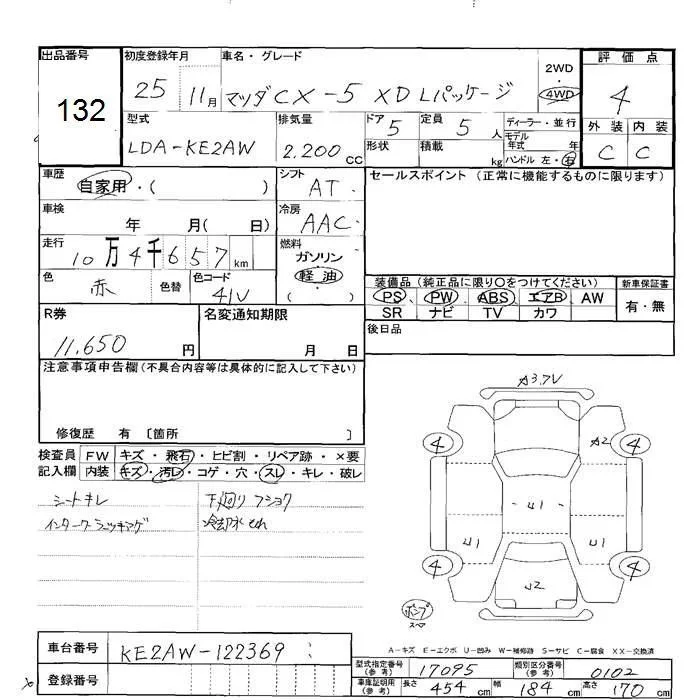 出品番号 初度登録年月 車名・グレード 評価点
132 25 11月 マツダCX-5 XD Lパッケージ 2WD・4WD 4
型式 排気量 ドア 定員 ディーラー・並行 外装 内装
LDA-KE2AW 2,200cc 5 5人 モデル年式 年 C C
形状 積載 kg ハンドル 左・右
車歴 自家用・( ) シフト AT セールスポイント (正常に機能するものに限ります)
車検 年 月( 日) 冷房 AAC
走行 10万4千657km 燃料 ガソリン 軽油 ( )
色 赤 色替 色コード 41V
装備品 (純正品に限り○をつけてください) 新車保証書
PS PW ABS エアB AW 有・無
SR ナビ TV カワ
R券 11,650円 名変通知期限 月 日 後日品
注意事項申告欄(不具合内容等は具体的に記入して下さい)
修復歴 有 〔箇所 〕
検査員記入欄 FW キズ・飛石・ヒビ割・リペア跡・×要
内装 キズ・汚レ・コゲ・穴・スレ・キレ・破レ
シートキレ 下廻りフショク
冷却水
A3.7V
4 A2 4
U1
U1 U1
4 U2 4
ポンプ
スペア
A-キズ E-エクボ U-凹み W-補修跡 S-サビ C-腐食 XX-交換済
車台番号 KE2AW-122369
型式指定番号(参考) 17095 類別区分番号(参考) 0102
登録番号
車庫証明用(参考) 長さ 454cm 幅 184cm 高さ 170cm